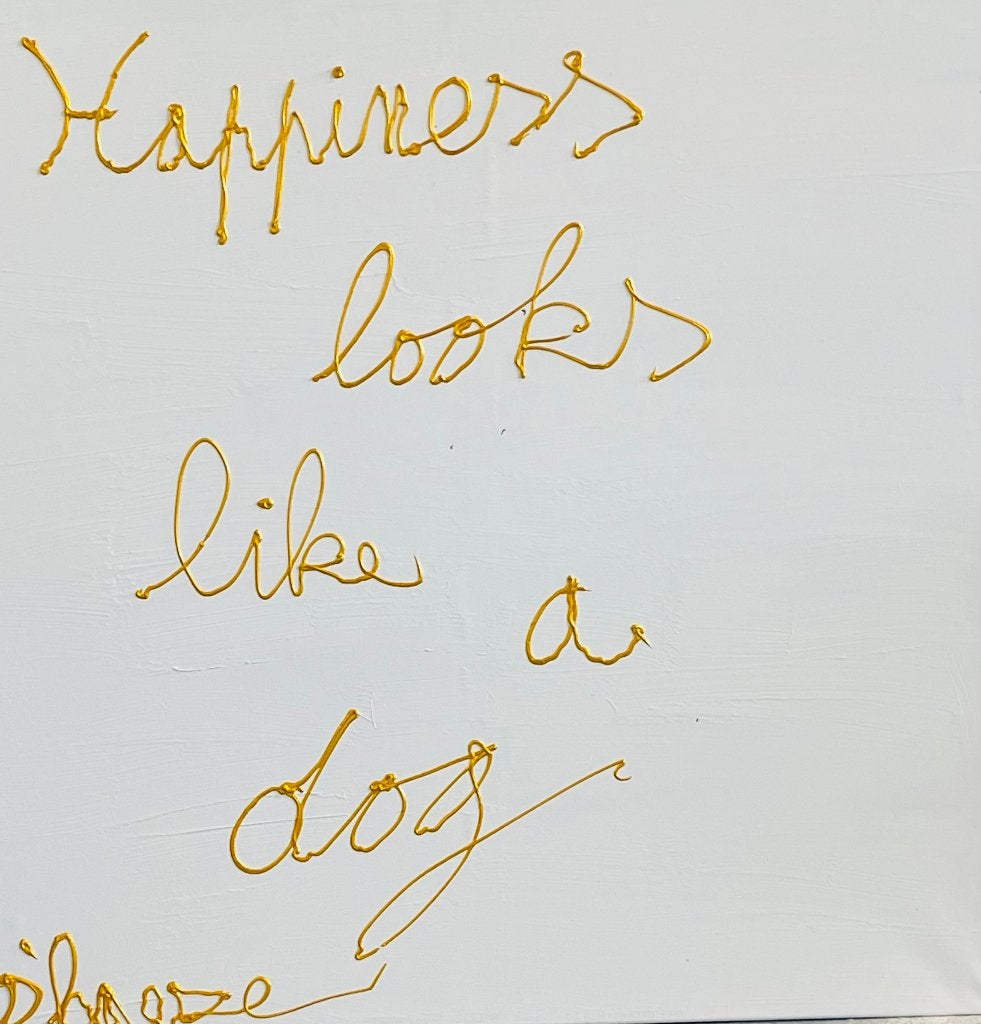 Happiness
looks
like
a
dog